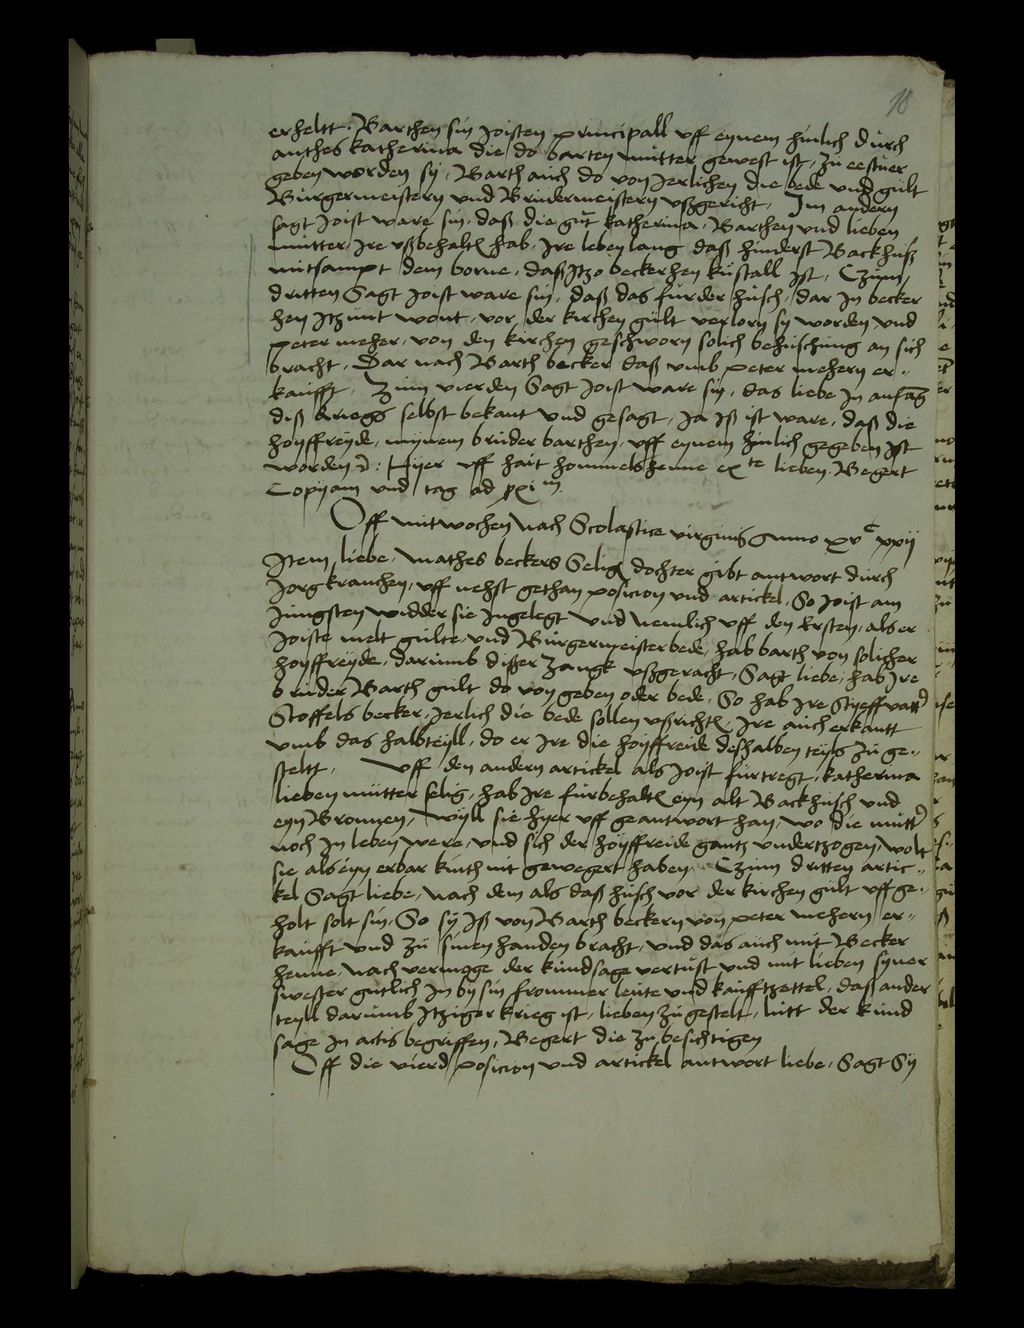 18
erheltt. Barthen sin Joisten principall uff eynem hinlich durch
anthes katherina die do barten mutter gewest ist, zu eestuer
geben worden sy, Barth auch do von Jerlichen die bede und gult
Burgermeistern und Brudermeistern ußgericht. Im andern
sagt Joist ware sin, daß die gut katherina, Barthen und lieben
mutter, Ire ußbehalten hab, Ire leben lang daß hinderst Backhuß
mitsampt dem borne, daß Itzo beckerhen kustall ist, Czum
dritten Sagt Joist ware sin, daß das furder husch, dar In becker
hen Itzunt wont, vor der kirchen gult verlorn sy worden und
peter meher, von den kirchen geschworn solich behuschung an sich
bracht. Dar nach Barth becker daß umb peter mehern er-
kaufft. Zum vierden Sagt Joist ware sin, das liebe In anfang
diß kriegs selbst bekant und gesagt, Ja Iß ist ware, daß die
hoyffreyde, mynem bruder barthen, uff eynem hinlich gegeben Ist
worden: Hyer uff hait hommelshenne ex te lieben. Begert
Copyam und tag ad xxi m
Off mitwochen nach Scolastice virginis Anno xv c xxij
Item liebe, mathes beckers Selig dochter gibt antwort durch
Jorg kranchen, uff nehst gethan posicion und artickel, So Joist am
Jungsten widder sie Ingelegt und nemlich uff den Ersten, als er
Joiste melt gulte und Burgermeisterbede, hab barth von solicher
hoyffreyde, darumb dißer zangk ußgeracht, Sagt liebe, hab Ire
bruder Barth gult do von geben oder bede, So hab Ire Styeffvatter
Stoffels becker, Jerlich die bede sollen ußrichten, Ire auch erkantt
umb das halbteyll, do er Ire die hoyffreide deßhalben teyls zu ge-
steltt. Uff den andern artickel als Joist furtregt, katherina
lieben mutter selig, hab Ire furbehalten eyn alt Backhusch und
eyn Bronnen, wyll sie hyer uff geantwort han, wo die mutter
noch In leben were, und sich der hoyffreide gantz undertzogen, wolt
sie als eyn erbar kinth nit gewegert haben. Czum dritten artic-
kel Sagt liebe, nach dem als daß husch vor der kirchen gult uffge-
holt solt sin, So sy Iß von Barth beckern von peter mehern er-
kaufft und zu sinen handen bracht, und das auch mit Becker
henne, nach vermoge der kundsage vertust und mit lieben syner
swester gutlich In by sin frommer leute und kaufftzettel, daß ander
teyll darumb Itziger krieg ist, lieben zugestelt, lutt der kund
sage In actis begriffen, Begert die zu besichtigen
Off die vierd posicion und artickel antwort liebe, Sagt Sy